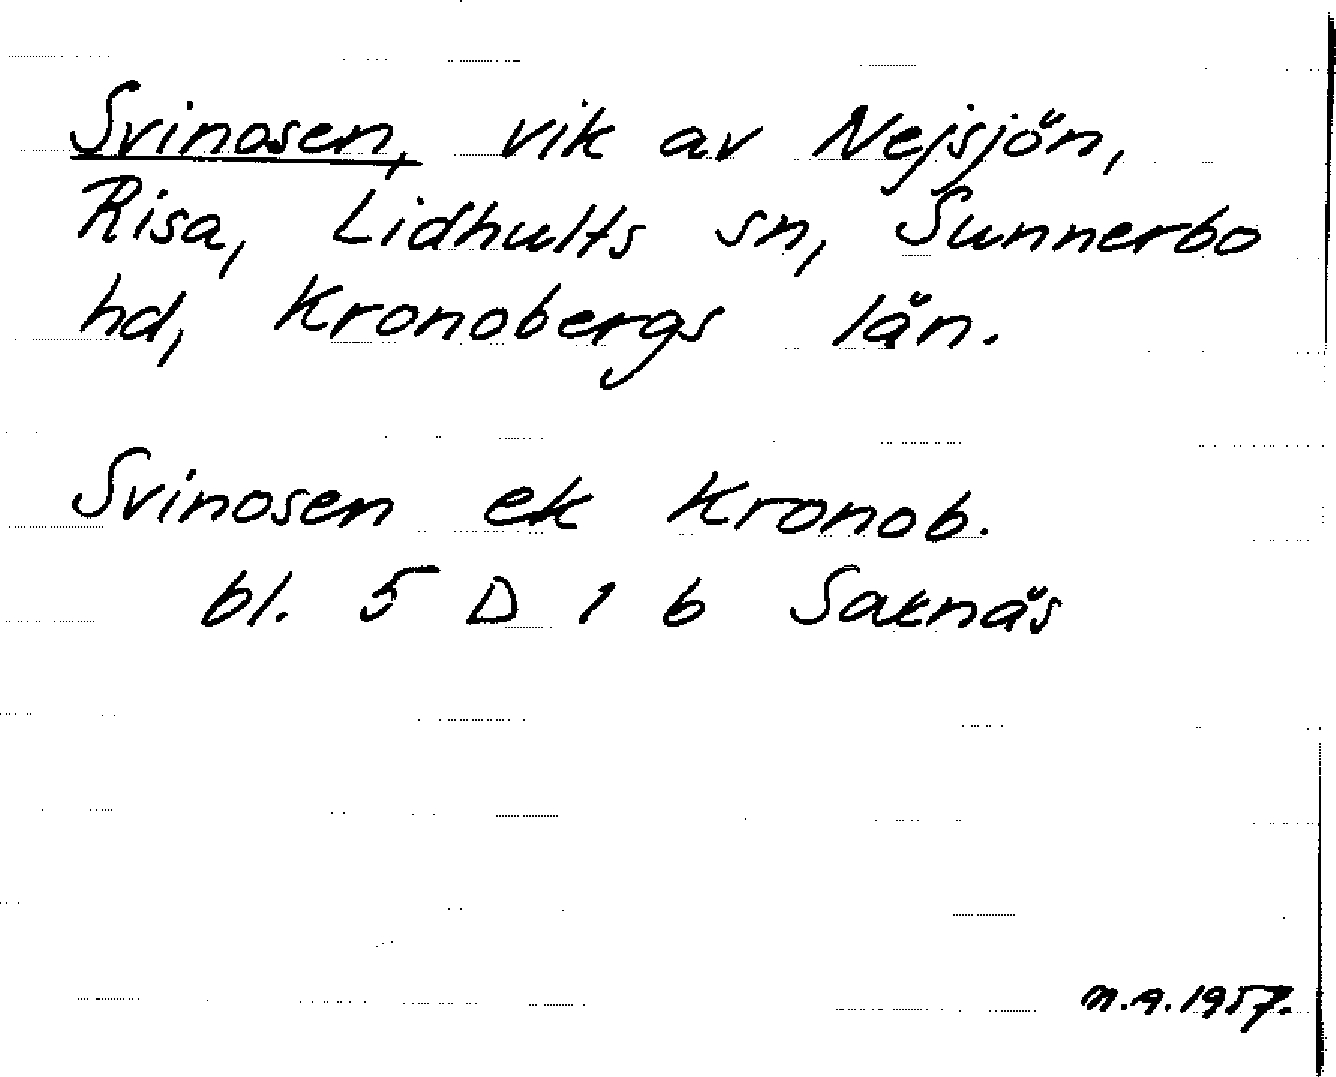 Svinosen, vik av Nejsjön,
Risa, Lidhults sn, Sunnerbo
hd, Kronobergs län.
Svinosen ek Kronob.
bl. 5 D 1 b Saknäs
M.A. 1957.